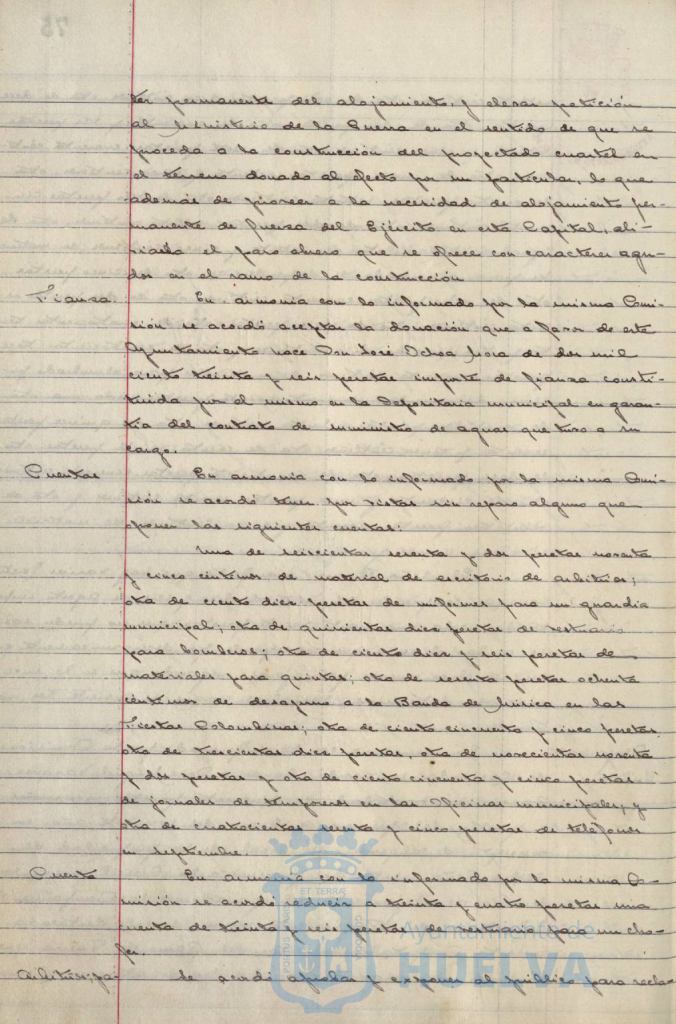 ter permanente del alojamiento, y elevar petición
al Ministerio de la Guerra en el sentido de que se
proceda a la construcción del proyectado cuartel en
el terreno donado al efecto por un particular, lo que
además de proveer a la necesidad de alojamiento per-
manente de fuerza del Ejército en esta Capital, ali-
viaría el paro obrero que se ofrece con caracteres agu-
dos en el ramo de la construcción
Fianza. En armonía con lo informado por la misma Comi-
sión se acordó aceptar la donación que a favor de este
Ayuntamiento hace Don José Ochoa Mora de dos mil
ciento treinta y seis pesetas importe de fianza consti-
tuida por el mismo en la Depositaria municipal en garan-
tía del contrato de suministro de aguas que tuvo a su
cargo.
Cuentas En armonía con lo informado por la misma Comi-
sión se acordó tener por vistas sin reparo alguno que
oponer las siguientes cuentas:
Una de seiscientas sesenta y dos pesetas noventa
y cinco céntimos de material de escritorio de arbitrios;
otra de ciento diez pesetas de uniformes para un guardia
municipal; otra de quinientas diez pesetas de vestuario
para bomberos; otra de ciento diez y seis pesetas de
materiales para quintas; otra de sesenta pesetas ochenta
céntimos de desayuno a la Banda de Música en las
Fiestas Colombinas; otra de ciento cincuenta y cinco pesetas,
otra de trescientas diez pesetas, otra de novecientas noventa
y dos pesetas y otra de ciento cincuenta y cinco pesetas
de jornales de temporeros en las Oficinas municipales, y
otra de cuatrocientas y cinco pesetas de teléfonos
en septiembre.
Cuenta En armonía con lo informado por la misma Co-
misión se acordó reducir a treinta y cuatro pesetas una
cuenta de treinta y seis pesetas de vestuario para un cho-
fer.
Arbitrios; pa- Se acordó aprobar y exponer al público para recla-
Ayuntamiento de
HUELVA